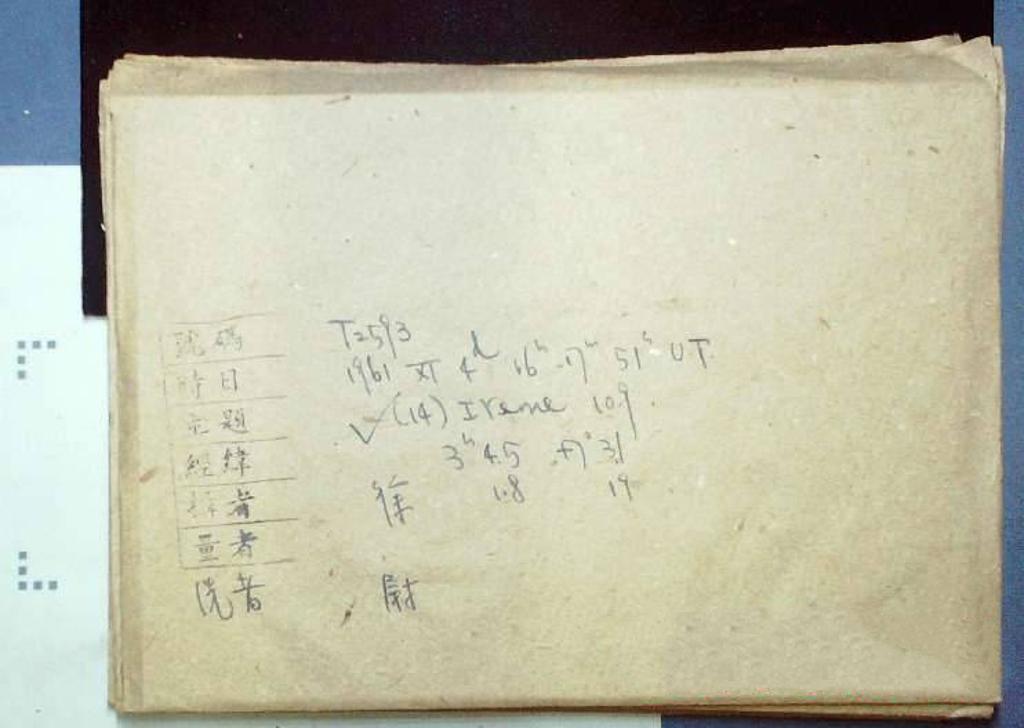 號碼 T2593
時日 1961 XI 4d 16h-17h 51h UT
題 ✓(14) Irene 10.9
經緯 3h 4.5 +7° 31
者 徐 1.8 19
量者
洗者 尉